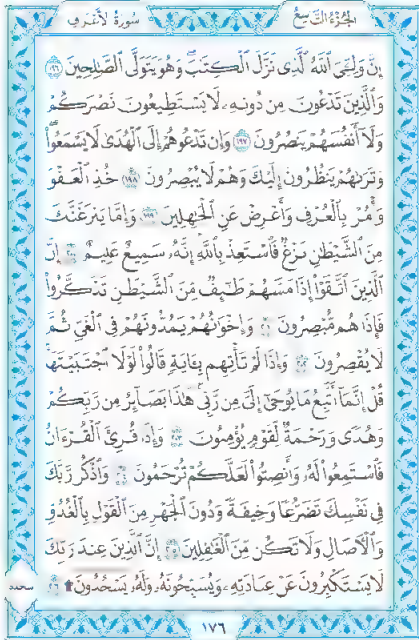 سورة الأعراف
الجزء التاسع
إن ولـۧى الله ٱلذى نزل ٱلكتـٰب وهو يتولى ٱلصـٰلحين ١٩٦
وٱلذين تدعون من دونهۦ لا يستطيعون نصركم
ولا أنفسهم ينصرون ١٩٧ وإن تدعوهم إلى ٱلهدى لا يسمعوا
وترىٰهم ينظرون إليك وهم لا يبصرون ١٩٨ خذ ٱلعفو
وأمر بٱلعرف وأعرض عن ٱلجـٰهلين ١٩٩ وإما ينزغنك
من ٱلشيطـٰن نزغ فٱستعذ بٱلله إنهۥ سميع عليم ٢٠٠ إن
ٱلذين ٱتقوا إذا مسهم طـٰئف من ٱلشيطـٰن تذكروا
فإذا هم مبصرون ٢٠١ وإخوٰنهم يمدونهم فى ٱلغى ثم
لا يقصرون ٢٠٢ وإذا لم تأتهم بـٔاية قالوا لولا ٱجتبيتها
قل إنما أتبع ما يوحىٰ إلى من ربى هـٰذا بصائر من ربكم
وهدى ورحمة لقوم يؤمنون ٢٠٣ وإذا قرئ ٱلقرءان
فٱستمعوا لهۥ وأنصتوا لعلكم ترحمون ٢٠٤ وٱذكر ربك
فى نفسك تضرعا وخيفة ودون ٱلجهر من ٱلقول بٱلغدو
وٱلـٔاصال ولا تكن من ٱلغـٰفلين ٢٠٥ إن ٱلذين عند ربك
لا يستكبرون عن عبادتهۦ ويسبحونهۥ ولهۥ يسجدون ۩ ٢٠٦
سجدة
١٧٦